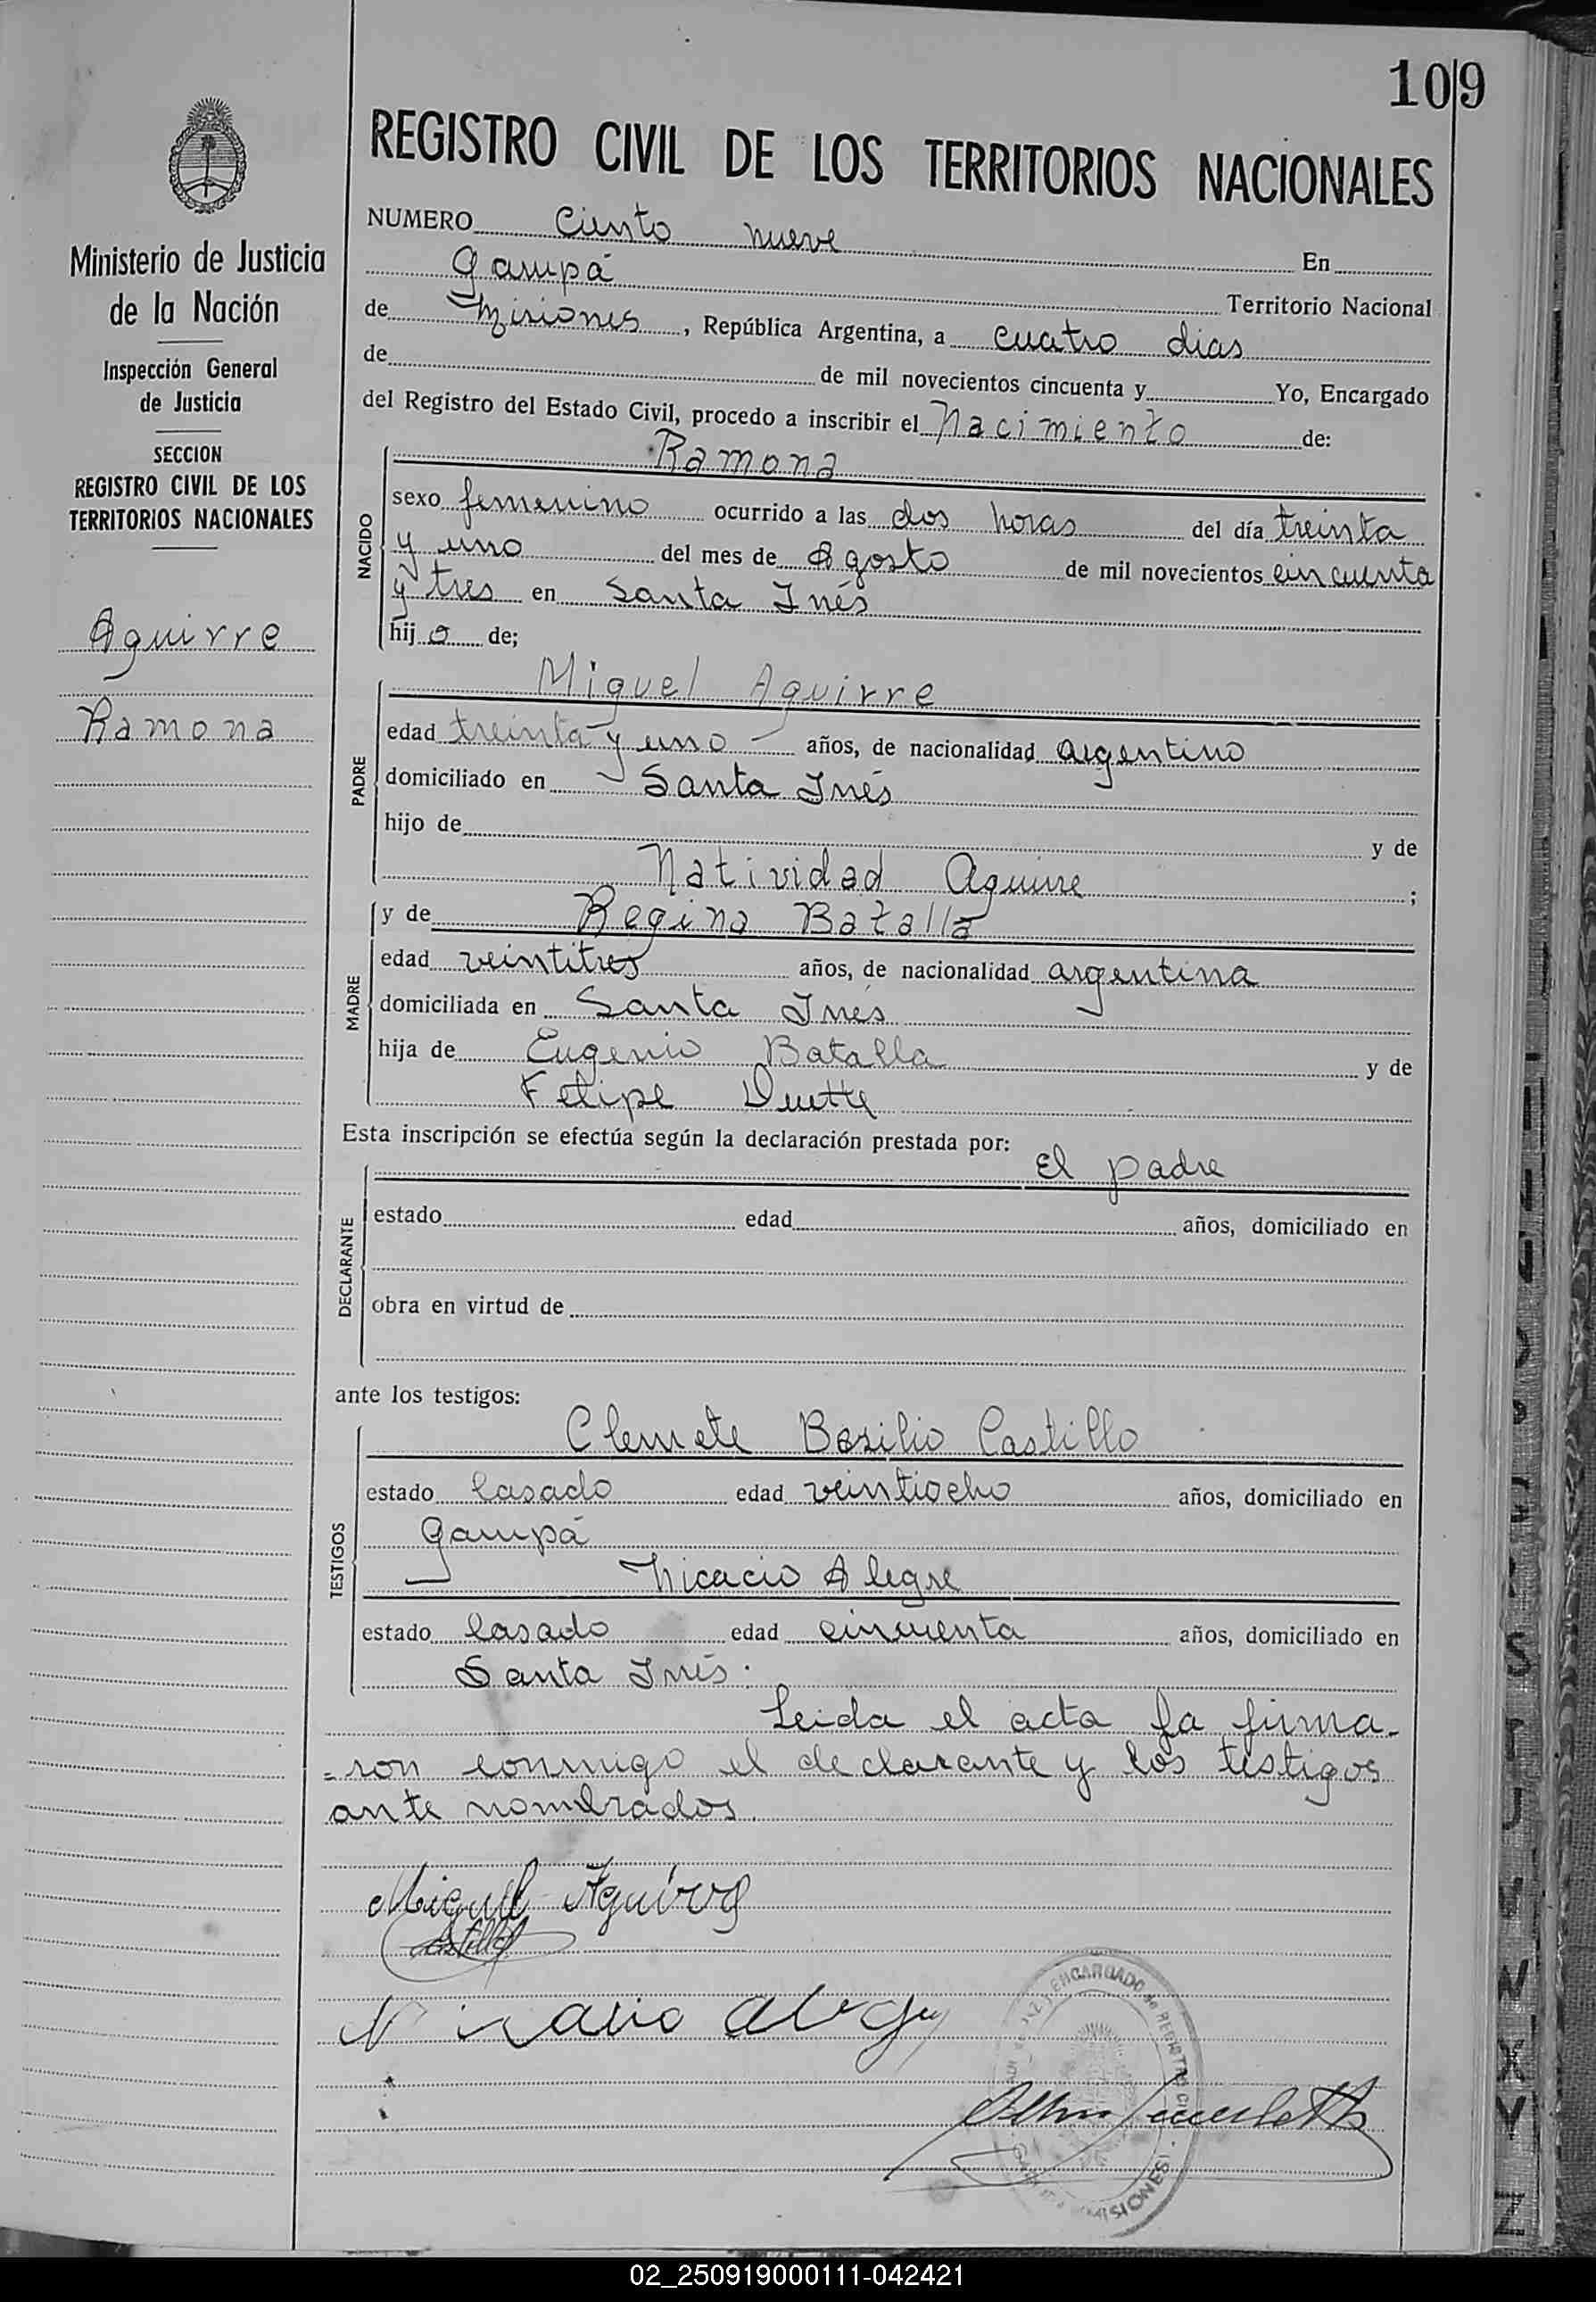 109
REGISTRO CIVIL DE LOS TERRITORIOS NACIONALES
Ministerio de Justicia
de la Nación
Inspección General
de Justicia
SECCION
REGISTRO CIVIL DE LOS
TERRITORIOS NACIONALES
Aguirre
Ramona
NUMERO Ciento nueve En
Garupá Territorio Nacional
de Misiones, República Argentina, a cuatro dias
de de mil novecientos cincuenta y Yo, Encargado
del Registro del Estado Civil, procedo a inscribir el Nacimiento de:
NACIDO
Ramona
sexo femenino ocurrido a las dos horas del día treinta
y uno del mes de Agosto de mil novecientos cincuenta
y tres en Santa Inés
hijo de;
PADRE
Miguel Aguirre
edad treinta y uno años, de nacionalidad argentino
domiciliado en Santa Inés
hijo de y de
Natividad Aguirre ;
MADRE
y de Regina Batalla
edad veintitres años, de nacionalidad argentina
domiciliada en Santa Inés
hija de Eugenio Batalla y de
Felipe
Esta inscripción se efectúa según la declaración prestada por:
DECLARANTE
El padre
estado edad años, domiciliado en
obra en virtud de
ante los testigos:
TESTIGOS
Clemete Basilio Castillo
estado casado edad veintiocho años, domiciliado en
Garupá
Nicacio Alegre
estado casado edad cincuenta años, domiciliado en
Santa Inés.
Leida el acta la firma-
=ron conmigo el declarante y los testigos
ante nombrados.
Miguel Aguirre
Castillo
ENCARGADO de REGISTRO
MISIONES
02_250919000111-042421